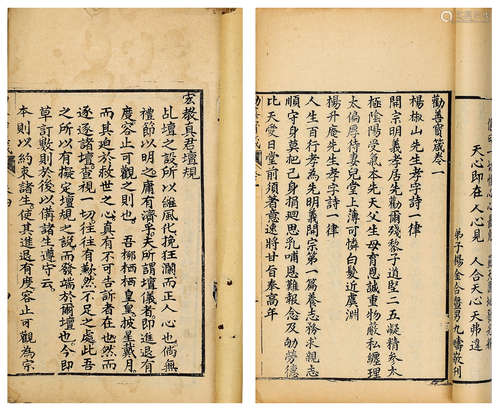 天心即在人心見 人合天心天弗違
弟子楊金合暨男九疇敬刊
勸善寶箴卷一
楊椒山先生孝字詩一律
開宗明義孝居先勸爾殘黎子道堅二五凝精參太
極陰陽受氣本先天父生母育恩誠重物蔽私纏理
太偏厚待妻兒堂上薄可憐白髮近虞淵
楊升庵先生孝字詩一律
人生百行孝為先明義開宗第一篇養志務求親志
順守身莫把己身捐迴思乳哺恩難報念及劬勞德
比天愛日堂前須著意速將甘旨奉高年
宏教真君壇規
乩壇之設所以維風化挽狂瀾而正人心也倘無
禮節以明之庸有濟乎夫所謂壇儀者即進退有
度容止可觀之則也 吾柳栖栖皇皇披星戴月
而其迫於救世之心真有不可告訴者在也然而
逐逐諸壇查視一切往往有歉然不足之處此吾
之所以有擬定壇規之說而發端於爾壇也今即
草訂數則於後以備諸生遵守云
本則以約束諸生使其進退有度容止可觀為宗